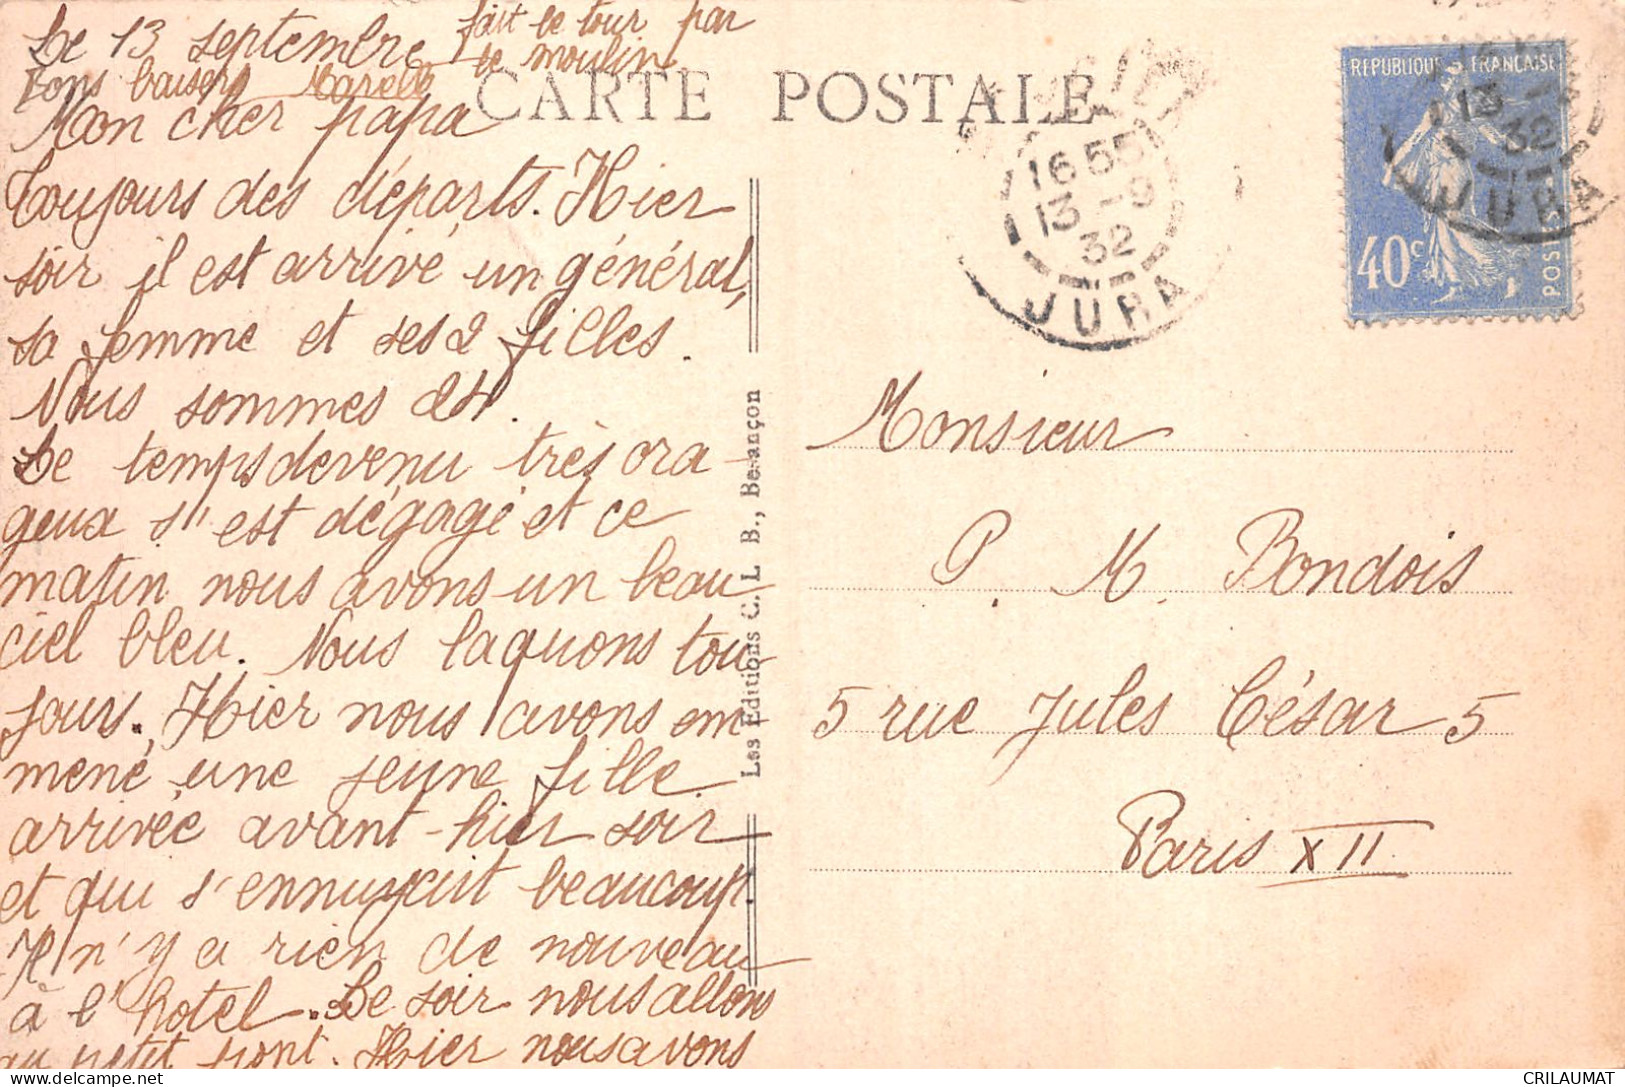 Le 13 septembre
fait le tour par
le moulin.
Bons baisers
CARTE POSTALE
Mon cher papa
Toujours des départs. Hier
soir il est arrivé un général,
sa femme et ses 2 filles.
Nous sommes 24.
Le temps devenu très ora-
geux s'est dégagé et ce
matin nous avons un beau
ciel bleu. Nous laquons tou
jours. Hier nous avons em
mené une jeune fille
arrivée avant-hier soir
et qui s'ennuyait beaucoup.
Il n'y a rien de nouveau
à l'hotel. Le soir nous allons
au petit pont. Hier nous avons
Les Editions C. L. B., Besançon
16 55
13 - 9
32
JURA
REPUBLIQUE FRANÇAISE
40c
POSTES
13
32
JURA
Monsieur
P. M. Bondois
5 rue Jules César 5
Paris XII
CRILAUMAT